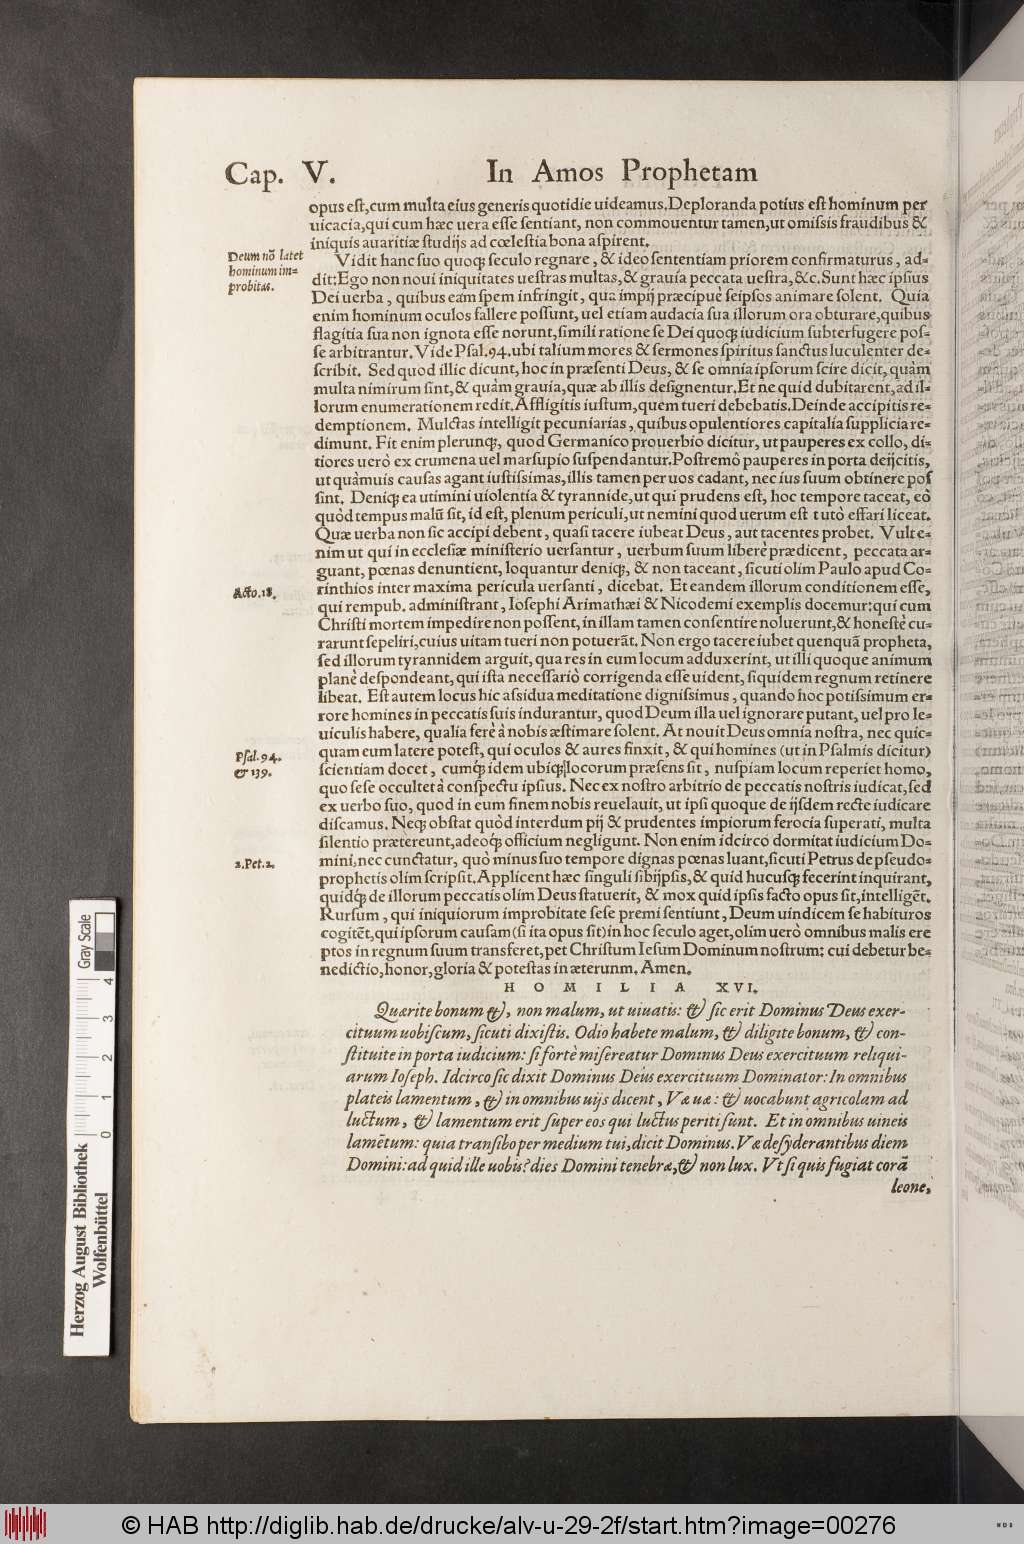 Cap. V. In Amos Prophetam
opus est, cum multa eius generis quotidie uideamus. Deploranda potius est hominum per
uicacia, qui cum hæc uera esse sentiant, non commouentur tamen, ut omissis fraudibus &
iniquis auaritiæ studijs ad cœlestia bona aspirent.
Deum nō latet
hominum im=
probitas.
Vidit hanc suo quoq; seculo regnare, & ideo sententiam priorem confirmaturus, ad=
dit: Ego non noui iniquitates uestras multas, & grauia peccata uestra, &c. Sunt hæc ipsius
Dei uerba, quibus eam spem infringit, qua impij præcipuè seipsos animare solent. Quia
enim hominum oculos fallere possunt, uel etiam audacia sua illorum ora obturare, quibus
flagitia sua non ignota esse norunt, simili ratione se Dei quoq; iudicium subterfugere pos=
se arbitrantur. Vide Psal. 94. ubi talium mores & sermones spiritus sanctus luculenter de=
scribit. Sed quod illic dicunt, hoc in præsenti Deus, & se omnia ipsorum scire dicit, quàm
multa nimirum sint, & quàm grauia, quæ ab illis designentur. Et ne quid dubitarent, ad il=
lorum enumerationem redit. Affligitis iustum, quem tueri debebatis. Deinde accipitis re=
demptionem. Mulctas intelligit pecuniarias, quibus opulentiores capitalia supplicia re=
dimunt. Fit enim plerunq;, quod Germanico prouerbio dicitur, ut pauperes ex collo, di=
tiores uerò ex crumena uel marsupio suspendantur. Postremò pauperes in porta deijcitis,
ut quàmuis causas agant iustissimas, illis tamen per uos cadant, nec ius suum obtinere pos
sint. Deniq; ea utimini uiolentia & tyrannide, ut qui prudens est, hoc tempore taceat, eò
quòd tempus malū sit, id est, plenum periculi, ut nemini quod uerum est tutò effari liceat.
Quæ uerba non sic accipi debent, quasi tacere iubeat Deus, aut tacentes probet. Vult e=
nim ut qui in ecclesiæ ministerio uersantur, uerbum suum liberè prædicent, peccata ar=
guant, pœnas denuntient, loquantur deniq;, & non taceant, sicuti olim Paulo apud Co=
Acto. 18.
rinthios inter maxima pericula uersanti, dicebat. Et eandem illorum conditionem esse,
qui rempub. administrant, Iosephi Arimathæi & Nicodemi exemplis docemur: qui cum
Christi mortem impedire non possent, in illam tamen consentire noluerunt, & honestè cu=
rarunt sepeliri, cuius uitam tueri non potuerāt. Non ergo tacere iubet quenquā propheta,
sed illorum tyrannidem arguit, qua res in eum locum adduxerint, ut illi quoque animum
planè despondeant, qui ista necessariò corrigenda esse uident, siquidem regnum retinere
libeat. Est autem locus hic assidua meditatione dignissimus, quando hoc potissimum er=
rore homines in peccatis suis indurantur, quod Deum illa uel ignorare putant, uel pro le=
uiculis habere, qualia ferè à nobis æstimare solent. At nouit Deus omnia nostra, nec quic=
Psal. 94.
& 139.
quam eum latere potest, qui oculos & aures finxit, & qui homines (ut in Psalmis dicitur)
scientiam docet, cumq́; idem ubiq; locorum præsens sit, nuspiam locum reperiet homo,
quo sese occultet à conspectu ipsius. Nec ex nostro arbitrio de peccatis nostris iudicat, sed
ex uerbo suo, quod in eum finem nobis reuelauit, ut ipsi quoque de ijsdem recte iudicare
discamus. Neq; obstat quòd interdum pij & prudentes impiorum ferocia superati, multa
silentio prætereunt, adeoq́; officium negligunt. Non enim idcirco dormitat iudicium Do=
2. Pet. 2.
mini, nec cunctatur, quò minus suo tempore dignas pœnas luant, sicuti Petrus de pseudo=
prophetis olim scripsit. Applicent hæc singuli sibijpsis, & quid hucusq; fecerint inquirant,
quidq́; de illorum peccatis olim Deus statuerit, & mox quid ipsis facto opus sit, intelligēt.
Rursum, qui iniquiorum improbitate sese premi sentiunt, Deum uindicem se habituros
cogitēt, qui ipsorum causam (si ita opus sit) in hoc seculo aget, olim uerò omnibus malis ere
ptos in regnum suum transferet, pet Christum Iesum Dominum nostrum: cui debetur be=
nedictio, honor, gloria & potestas in æterunm. Amen.
HOMILIA XVI.
Quærite bonum &, non malum, ut uiuatis: & sic erit Dominus Deus exer-
cituum uobiscum, sicuti dixistis. Odio habete malum, & diligite bonum, & con-
stituite in porta iudicium: si fortè misereatur Dominus Deus exercituum reliqui-
arum Ioseph. Idcirco sic dixit Dominus Deus exercituum Dominator: In omnibus
plateis lamentum, & in omnibus uijs dicent, Væ uæ: & uocabunt agricolam ad
luctum, & lamentum erit super eos qui luctus periti sunt. Et in omnibus uineis
lamētum: quia transibo per medium tui, dicit Dominus. Væ desyderantibus diem
Domini: ad quid ille uobis? dies Domini tenebræ, & non lux. Vt si quis fugiat corā
leone,
Gray Scale
0 1 2 3 4
Herzog August Bibliothek
Wolfenbüttel
© HAB http://diglib.hab.de/drucke/alv-u-29-2f/start.htm?image=00276